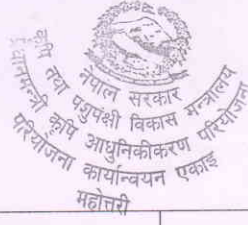 नेपाल सरकार
कृषि तथा पशुपंक्षी विकास मन्त्रालय
प्रधानमन्त्री कृषि आधुनिकीकरण परियोजना
परियोजना कार्यान्वयन एकाइ
महोत्तरी